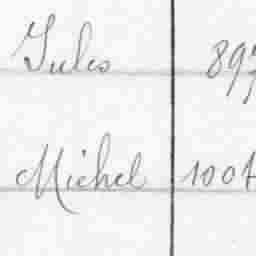 Jules 897
Michel 1004